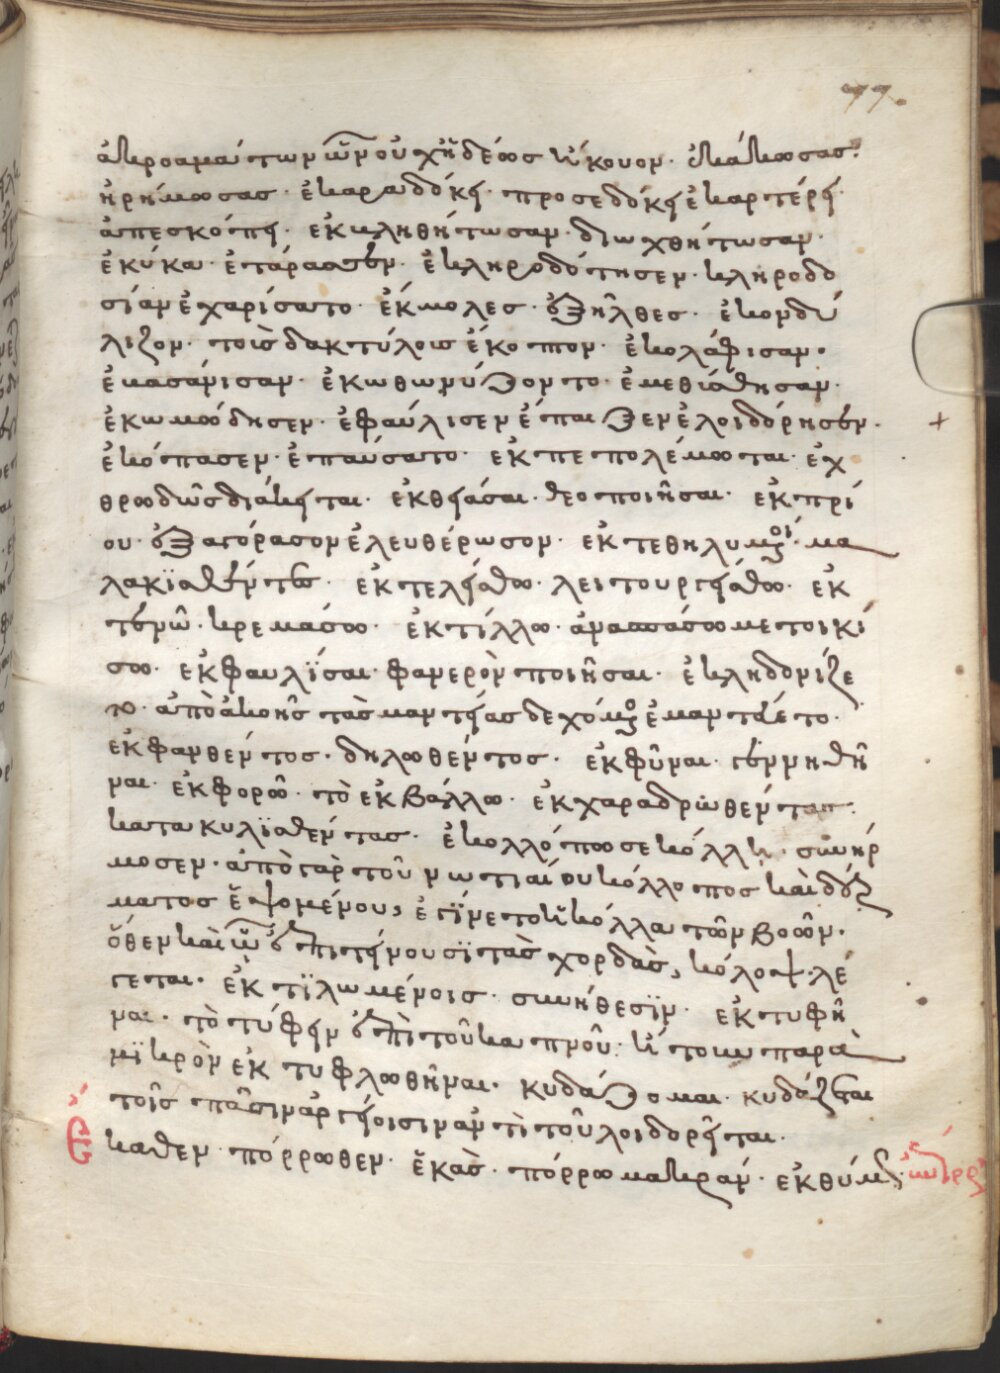 77.
ἀκροαμάτων ὧν οὐχ ἡδέως ἤκουον· ἐκάκωσας·
ἠρήμωσας· ἐκαραδόκει· προσεδόκει ἐκαρτέρει·
ἀπεσκόπει· ἐκκληθήτωσαν· διωχθήτωσαν·
ἐκύκα· ἐτάρασσεν· ἐκληροδότησεν· κληροδο
σίαν ἐχαρίσατο· ἐκμολες· ἐξῆλθες· ἐκονδύ
λιζον· τοῖς δακτύλοις ἔκοπτον· ἐκολάφισαν·
ἐμασάνισαν· ἐκωθωνύζοντο· ἐμεθύσθησαν·
ἐκωμώδησεν· ἐφαύλισεν ἔπαιξεν ἐλοιδόρησεν·
ἐκόπασεν· ἐπαύσατο· ἐκπεπολέμωται· ἐχ
θρωδῶς διάκειται· ἐκθειάσαι· θεοποιῆσαι· ἐκπρί
ου· ἐξαγόρασον ἐλευθέρωσον· ἐκτεθηλυμένοι· μα
λακϊσθέντες· ἐκτελείσθω· λειτουργείσθω· ἐκ
τενῶ· κρεμάσω· ἐκτίλλω· ἀνασπάσω μετοικί
σω· ἐκφαυλΐσαι· φανερὸν ποιῆσαι· ἐκληδονίζε
το· ἀπὸ ἀκοῆς τὰς μαντείας δεχόμενος ἐμαντεύετο·
ἐκφανθέντος· δηλωθέντος· ἐκφῦναι· γεννηθῆ
ναι· ἐκφορῶ· τὸ ἐκβάλλω· ἐκχαραδρωθέντας·
κατακυλϊσθέντας· ἐκολλόπωσε κόλλη· συνήρ
μοσεν· ἀπὸ γὰρ τοῦ νωτιαίου κόλλοπος καὶ δέρ
ματος ἑψομένου, ἐγΐνετο ἡ κόλλα τῶν βοῶν·
ὅθεν καὶ ὧ ἐπιτείνουσϊ τὰς χορδὰς, κόλοψ λέ
γεται· ἐκτϊλωμένοις· συνήθεσϊν· ἐκτυφῆ
ναι· τὸ τύφειν ἐπὶ τοῦ καπνοῦ· ἤτοι παρὰ
μϊκρὸν ἐκτυφλωθῆναι· κυδάζομαι· κυδάζεται
τοῖς πᾶσιν ἀργείοισιν ἀντὶ τοῦ λοιδορεῖται·
Ἕκαθεν· πόρρωθεν· ἕκας· πόρρω μακράν· ἐκθύμως·